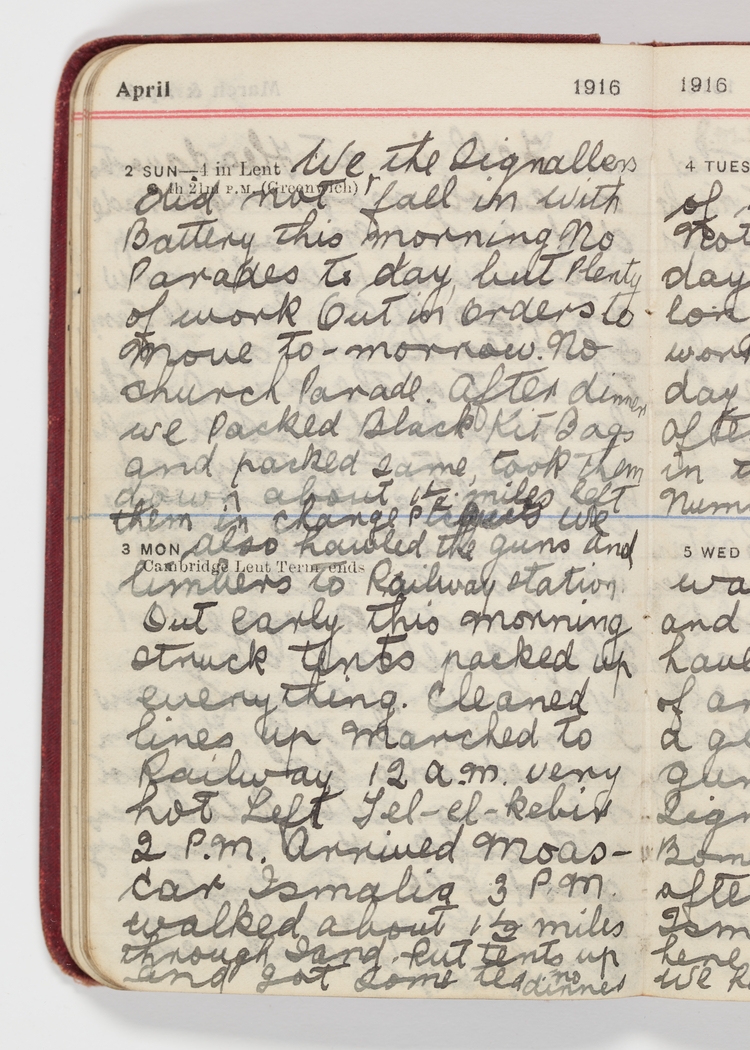 April 1916
2 SUN—4 in Lent We, the Signallers
1h 21m P.M. (Greenwich)
did not fall in with
Battery this morning No
Parades to day, but Plenty
of work Out in orders to
move to-morrow. No
church Parade. After dinner
we Packed Black Kit Bags
and packed same, took them
down about 1½ miles left
them in charge we
3 MON also hauled the guns and
Cambridge Lent Term ends
limbers to Railway station.
Out early this morning
struck tents packed up
everything. Cleaned
lines up marched to
Railway 12 a.m. very
hot Left Tel-el-Kebir
2 P.M. Arrived Moas-
car Ismalia 3 P.M.
walked about 1½ miles
through Sand. Put tents up
and got some tea no
dinner
1916
4 TUES
of
Not
day
lon
work
day
afte
in t
Num
5 WED
wa
and
have
of ar
a ge
gun
Sign
Bom
afte
Ism
here
we